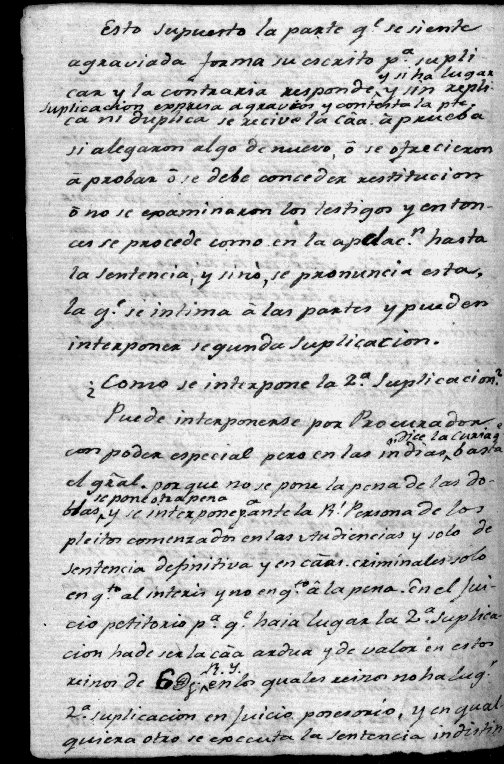 Esto supuesto la parte q.e se siente
agraviada forma su escrito p.a supli
y si ha lugar
car y la contraria responde, y sin repli
suplicacion expresa agravios y contesta la pte
ca ni duplica se recive la cãa. â prueba
si alegaron algo de nuevo, ô se ofrecieron
â probar ô se debe conceder restitucion
ô no se examinaron los testigos y enton-
ces se procede como en la apelac.n hasta
la sentencia, y sino, se pronuncia esta,
la q.e se intima â las partes y pueden
interponer segunda suplicacion.
¿Como se interpone la 2.a Suplicacion?
Puede interponerse por Procurador
con poder especial pero en las indias, basta
dice la Curia q.e
el grãl. porque no se pone la pena de las do-
se pone otra pena
blas, y se interpone p.a ante la R.l Persona de los
pleitos comenzados en las Audiencias y solo de
sentencia definitiva y en cãas. criminales solo
en q.to al interis y no en q.to â la pena. En el Jui-
cio petitorio p.a q.e haia lugar la 2.a suplica-
cion ha de ser la cãa ardua y de valor en estos
reinos de 6
en los quales reinos no ha lug.r
2.a suplicacion en Juicio posesorio, y en qual-
quiera otro se executa la sentencia indistin